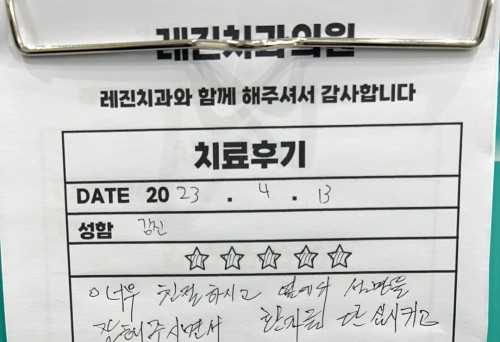 레진치과의원
레진치과와 함께 해주셔서 감사합니다
치료후기
DATE 2023 . 4 . 13
성함 김진
너무 친절하시고 옆에서 설명을
잘해주시면서 환자를 안심시키고